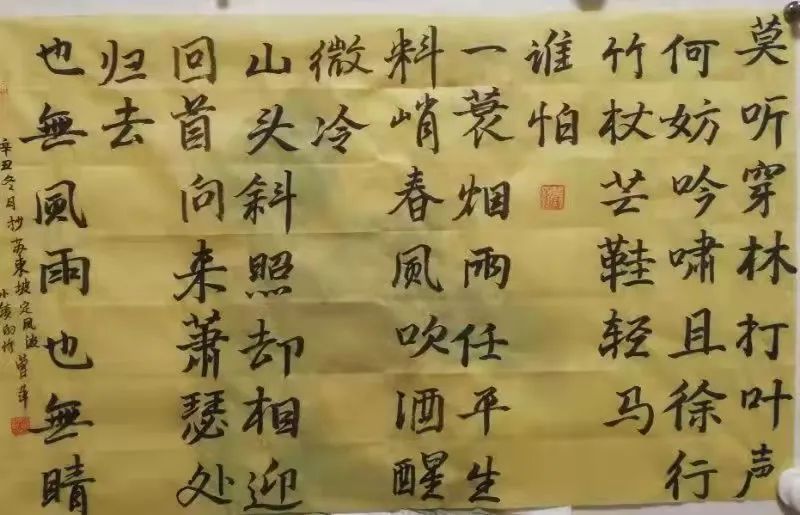 莫听穿林打叶声
何妨吟啸且徐行
竹杖芒鞋轻马
谁怕
一蓑烟雨任平生
料峭春風吹酒醒
微冷
山头斜照却相迎
回首向来萧瑟处
归去
也無風雨也無晴
辛丑冬月抄苏東坡定风波